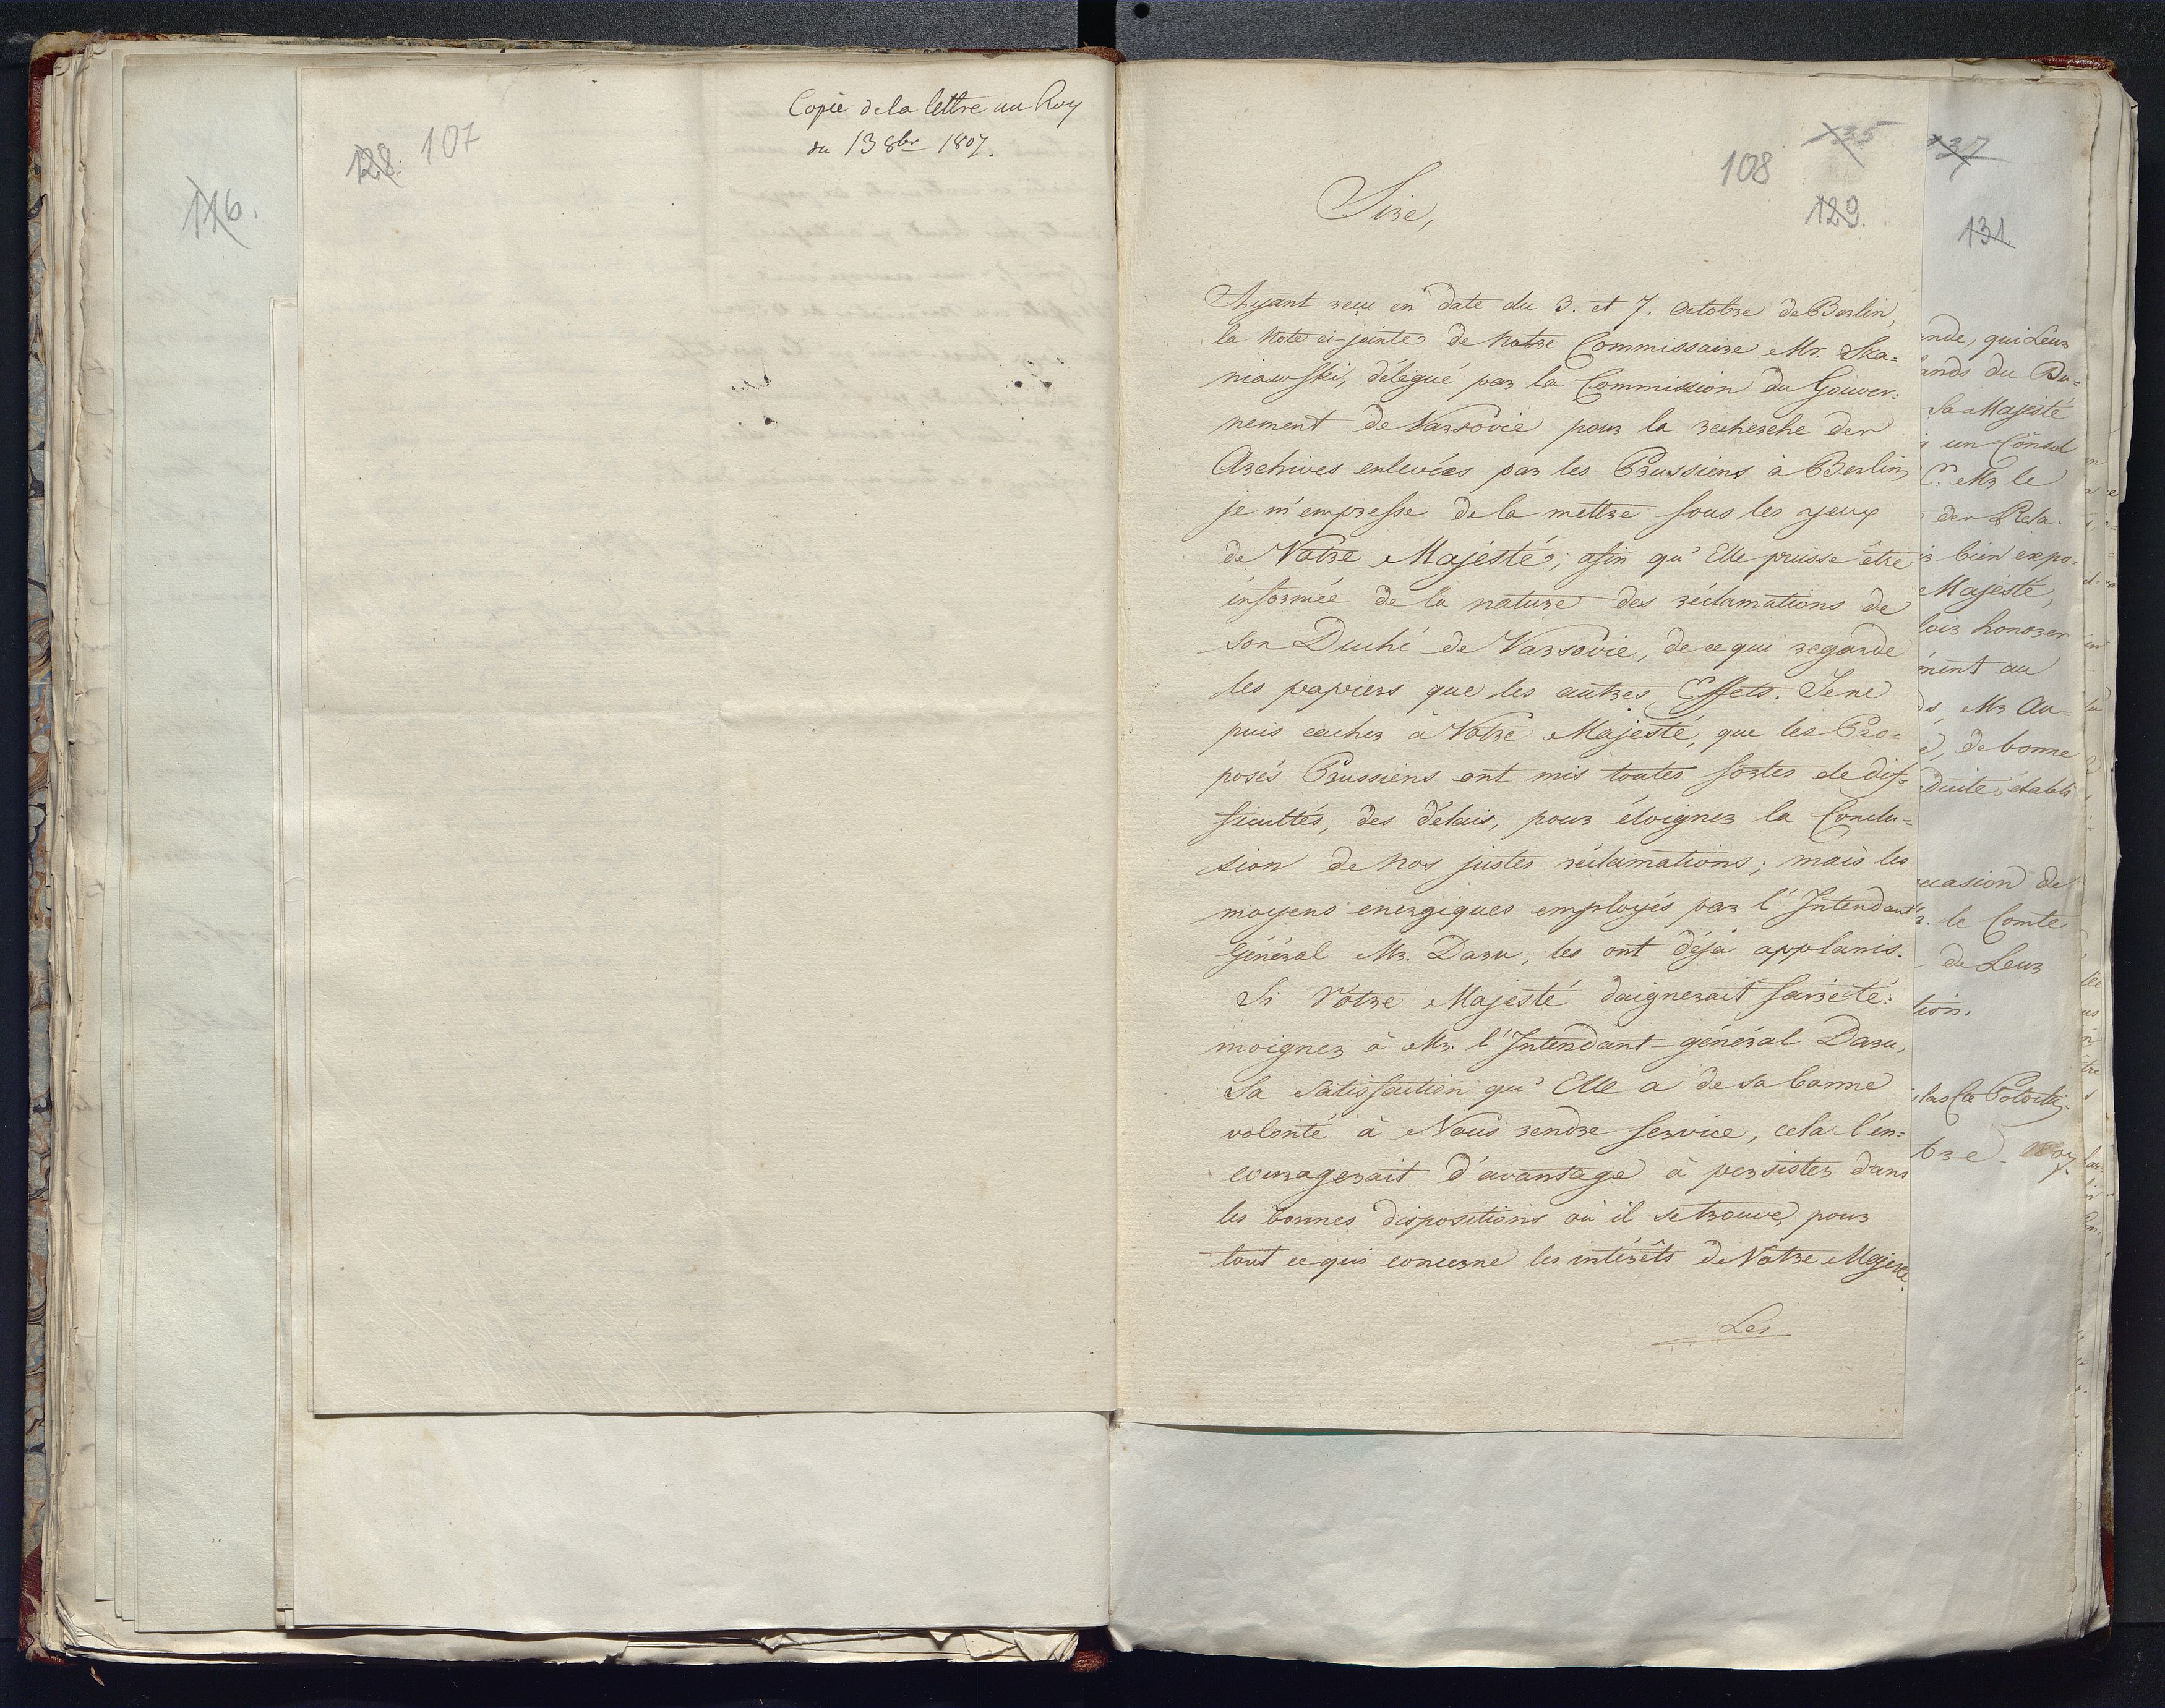 116.
128. 107
Copie de la lettre au Roy
du 13 8br 1807.
135
108
129.
Sire,
Ayant reçu en date du 3. et 7. Octobre de Berlin,
la Note ci-jointe de Notre Commissaire Mr. Sza=
niawski, délégué par la Commission du Gouver=
nement de Varsovie pour la recherche der
Archives enlevées par les Prussiens à Berlin,
je m'empresse de la mettre sous les yeux
de Votre Majesté, afin qu'Elle puisse être
informée de la nature des réclamations de
son Duché de Varsovie, de ce qui regarde
les papiers que les autres Effets. Je ne
puis cacher à Votre Majesté, que les Pro=
posés Prussiens ont mis toutes sortes de dif=
ficultés, des délais, pour éloigner la Conclu=
sion de nos justes réclamations; mais les
moyens énergiques employés par l'Intendant
Général Mr. Daru, les ont déjà applanis.
Si Votre Majesté daignerait faire té=
moigner à Mr. l'Intendant-général Daru,
Sa Satisfaction qu'Elle a de sa bonne
volonté à Nous rendre service, cela l'en=
couragerait d'avantage à persister dans
les bonnes dispositions où il se trouve, pour
tout ce qui concerne les intérêts de Votre Majesté.
Les
137
131.
ande, qui Leur
ands du Du=
Sa Majesté
un Consul
Mr le
der Rela=
bien expo=
Majesté,
loir honorer
ment au
Mr Au=
de bonne
duite, établi
ccasion de
le Comte
de Leur
tion.
las Cte Potocki.
bre 1807.